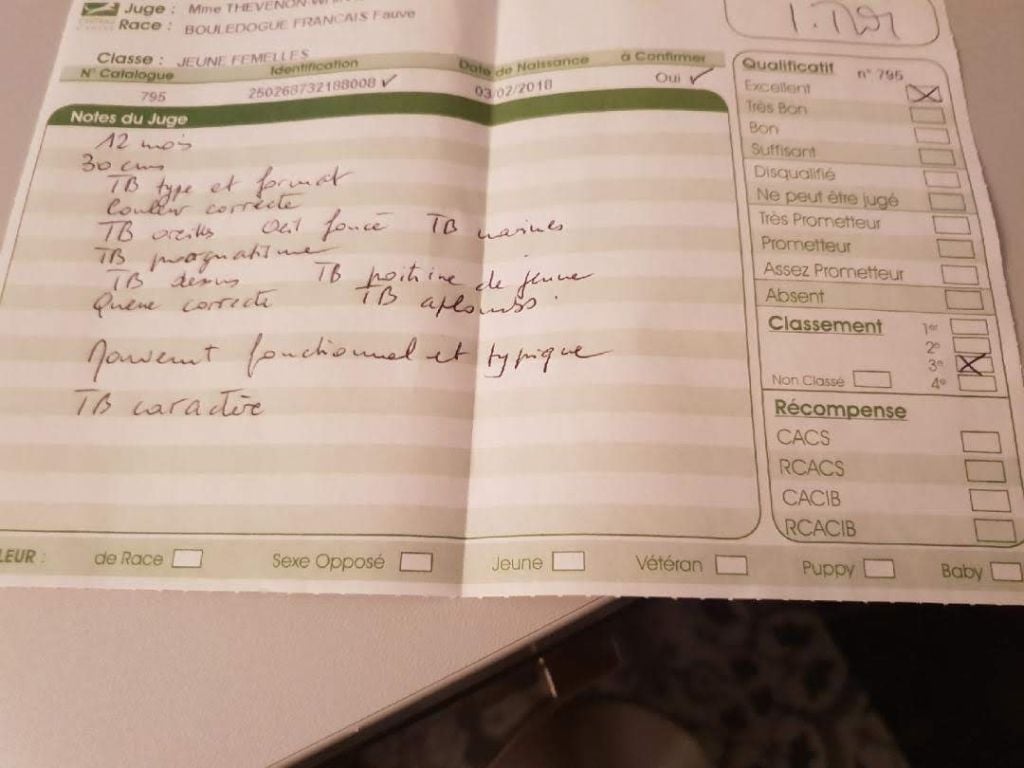 Juge : Mme THEVENON
Race : BOULEDOGUE FRANCAIS Fauve
Classe : JEUNE FEMELLES
N° Catalogue Identification Date de Naissance à Confirmer
795 250268732188008 ✓ 03/02/2018 Oui ✓
Notes du Juge
12 mois
30 cms
TB type et format
Couleur correcte
TB oreilles Oeil foncé TB narines
TB prognatisme
TB dessus TB poitrine de jeune
Queue correcte TB aplombs.
Mouvement fonctionnel et typique
TB caractère
Qualificatif n° 795
Excellent
Très Bon
Bon
Suffisant
Disqualifié
Ne peut être jugé
Très Prometteur
Prometteur
Assez Prometteur
Absent
Classement 1er
2e
3e
Non Classé 4e
Récompense
CACS
RCACS
CACIB
RCACIB
LEUR : de Race Sexe Opposé Jeune Vétéran Puppy Baby